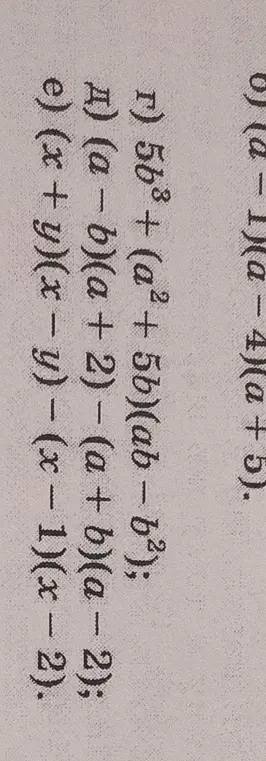 б) (a − 1)(a − 4)(a + 5).
г) 5b³ + (a² + 5b)(ab − b²);
д) (a − b)(a + 2) − (a + b)(a − 2);
е) (x + y)(x − y) − (x − 1)(x − 2).